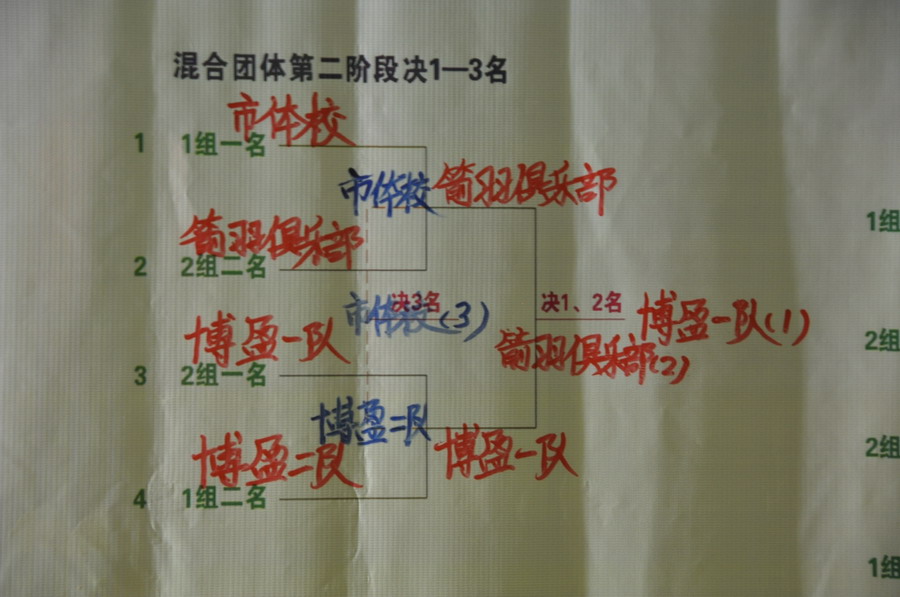 混合团体第二阶段决1—3名
市体校
1 1组一名
市体校 箭羽俱乐部
1组
箭羽俱乐部
2 2组二名
决3名
市体校(3)
决1、2名
博盈一队(1)
博盈一队
箭羽俱乐部(2)
2组
3 2组一名
博盈二队
博盈二队
博盈一队
2组
4 1组二名
1组